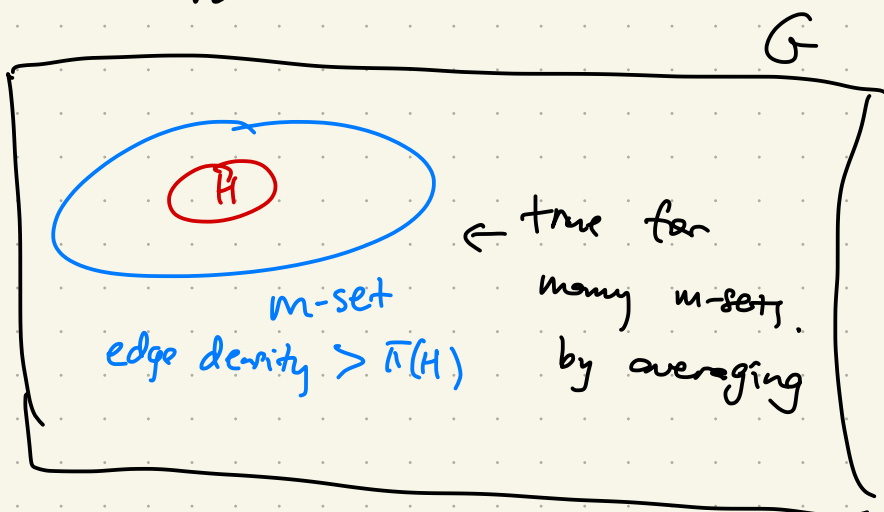 G
H
m-set
edge density > π(H)
← true for
many m-sets.
by averaging